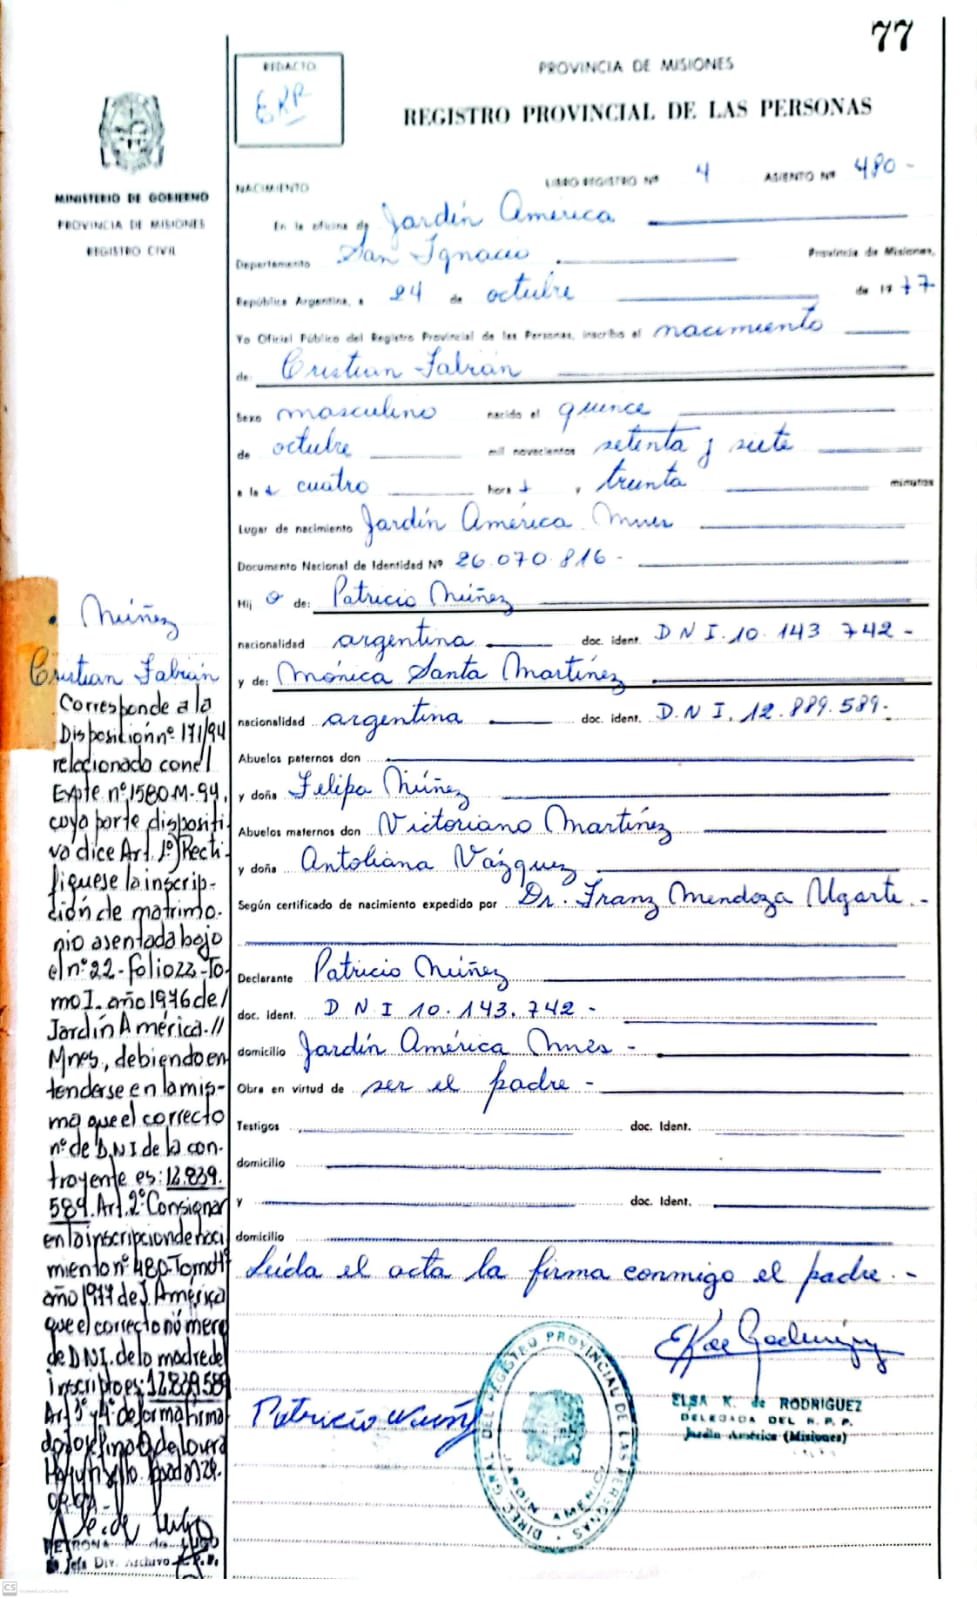 77
REDACTO
EKR
PROVINCIA DE MISIONES
REGISTRO PROVINCIAL DE LAS PERSONAS
MINISTERIO DE GOBIERNO
PROVINCIA DE MISIONES
REGISTRO CIVIL
NACIMIENTO LIBRO REGISTRO Nº 4 ASIENTO Nº 480 -
En la oficina de Jardín América
Departamento San Ignacio Provincia de Misiones,
República Argentina, a 24 de octubre de 1977
Yo Oficial Público del Registro Provincial de las Personas, inscribo el nacimiento
de: Cristian Fabián
Sexo masculino nacido el quince
de octubre mil novecientos setenta y siete
a las cuatro horas y treinta minutos
Lugar de nacimiento Jardín América Mnes
Documento Nacional de Identidad Nº 26.070.816 -
Hijo de: Patricio Núñez
nacionalidad argentina doc. ident. D N I. 10. 143 742 -
y de: Mónica Santa Martínez
nacionalidad argentina doc. ident. D. N I. 12. 889. 589 -
Abuelos paternos don
y doña Felipa Núñez
Abuelos maternos don Victoriano Martínez
y doña Antoliana Vázquez
Según certificado de nacimiento expedido por Dr. Franz Mendoza Ugarte. -
Declarante Patricio Núñez
doc. ident. D N I 10. 143. 742 -
domicilio Jardín América Mnes -
Obra en virtud de ser el padre -
Testigos doc. Ident.
domicilio
y doc. Ident.
domicilio
Leída el acta la firma conmigo el padre. -
Patricio Nuñez
DIREC. GRAL. DEL REGISTRO PROVINCIAL DE LAS PERSONAS
JARDIN AMERICA
ELSA K. de RODRIGUEZ
DELEGADA DEL R. P. P.
Jardín América (Misiones)
Núñez
Cristian Fabián
Corresponde a la
Disposición nº 171/94
relacionado con el
Expte. nº 1580.M-94,
cuya parte dispositi-
va dice Art. 1º) Recti-
fíquese la inscrip-
ción de matrimo-
nio asentada bajo
el nº 22 - folio 22 - To-
mo I. año 1976 de /
Jardín América. //
Mnes, debiendo en
tenderse en la mis-
ma que el correcto
nº de D.N.I de la con-
trayente es: 12.839.
589. Art. 2º Consignar
en la inscripcion de naci
miento nº 480 - Tomo
año 1977 de J. América
que el correcto número
de DNI. de la madre del
inscripto es: 12.839.589
Art 3º y 4º de forma firma
do
PETRONA de LUGO
Jefa Div. Archivo
CS